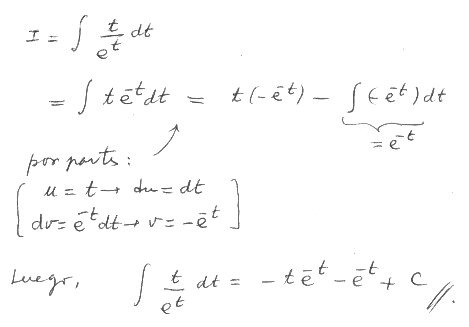 I = ∫ t/e^t dt
= ∫ t e^-t dt = t(-e^-t) - ∫ (-e^-t) dt
= e^-t
por parts:
[ u = t → du = dt
dv = e^-t dt → v = -e^-t ]
Luego, ∫ t/e^t dt = -t e^-t - e^-t + C //.